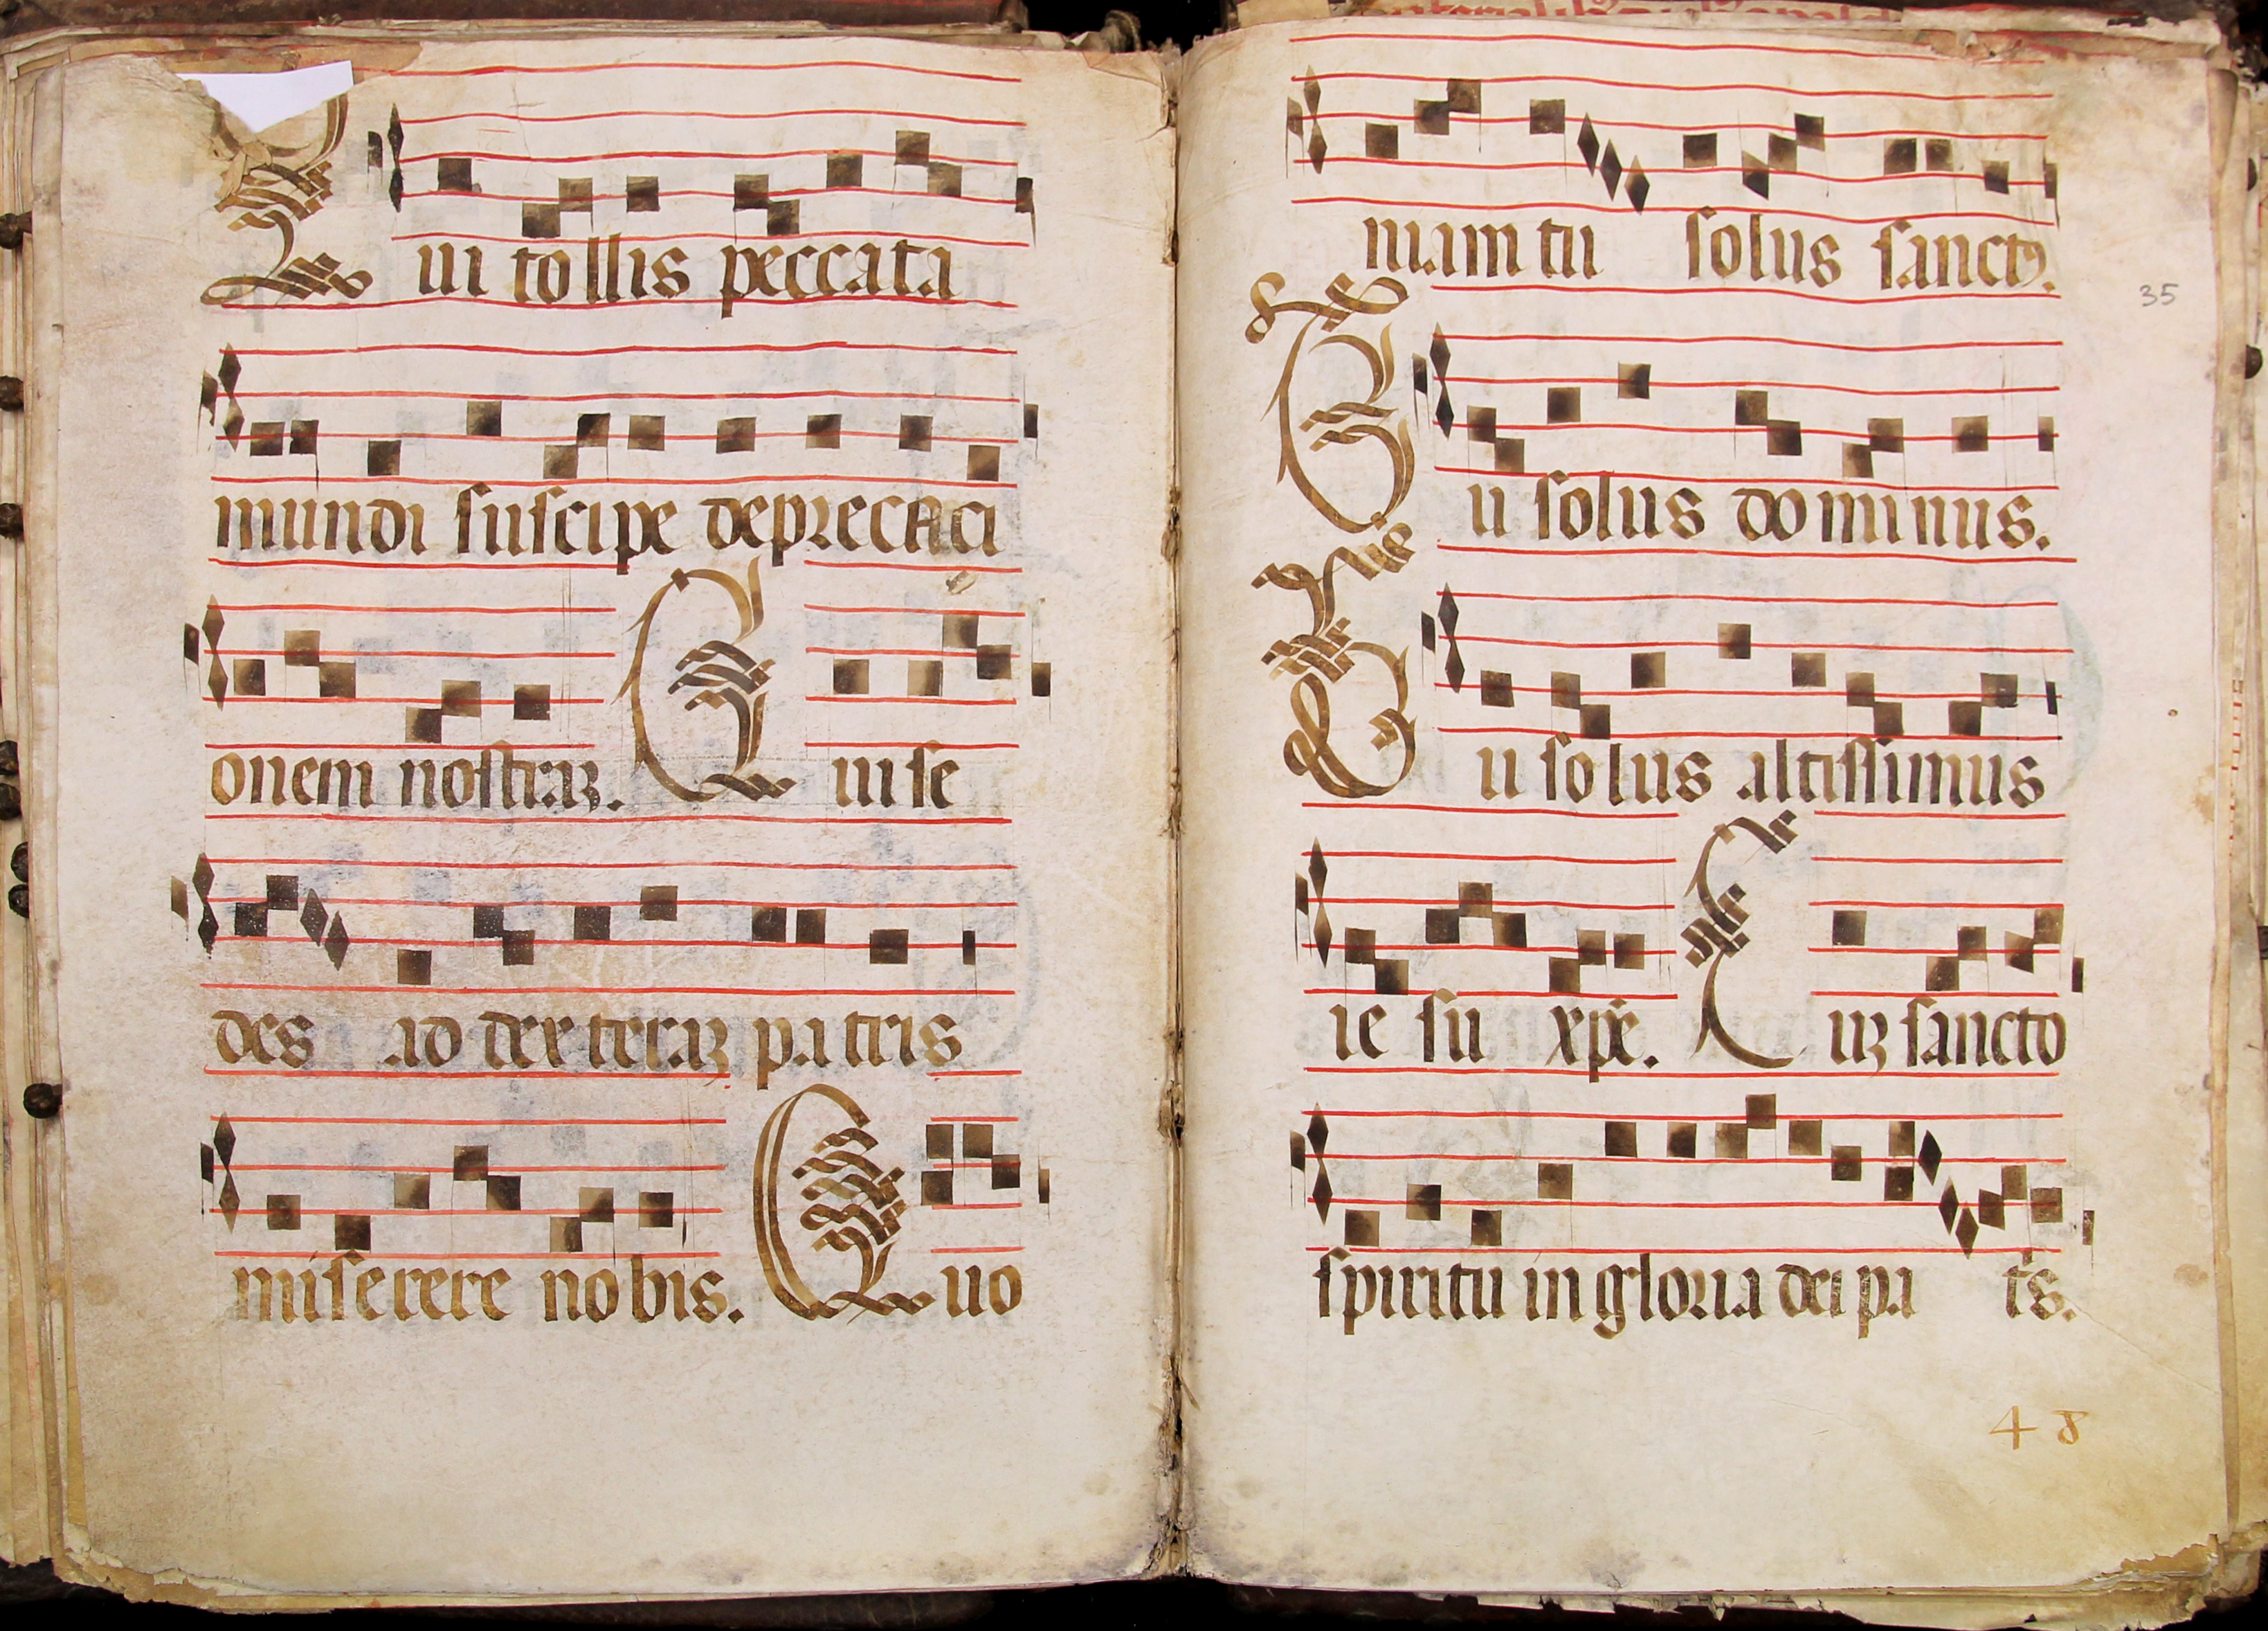 Qui tollis peccata
mundi suscipe deprecaci
onem nostraʒ. Qui se
des ad dexteraʒ patris
miserere nobis. Quo
niam tu solus sanctꝰ.
35
Tu solus dominus.
Tu solus altissimus
iesu xpe. Cuʒ sancto
spiritu in gloria dei pa ts.
48